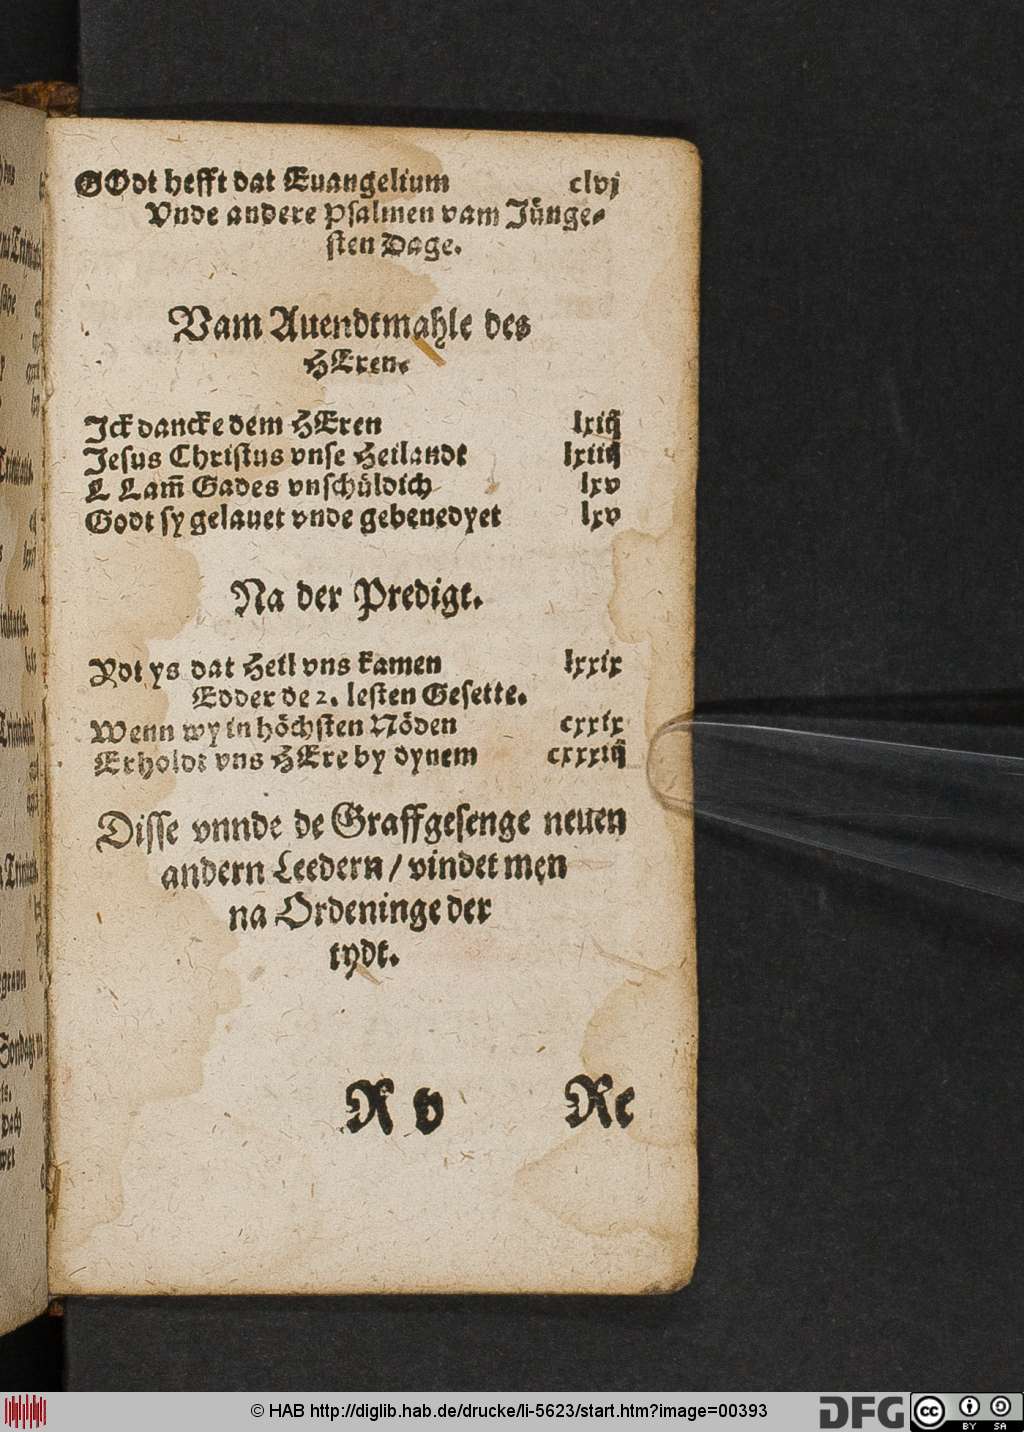 GOdt hefft dat Euangelium clvj
Vnde andere Psalmen vam Jünge⸗
sten Dage.
Vam Auendtmahle des
HEren.
Ick dancke dem HEren lxiij
Jesus Christus vnse Heilandt lxiiij
Lam̃ Gades vnschüldich lxv
Godt sy gelauet vnde gebenedyet lxv
Na der Predigt.
ys dat Heil vns kamen lxxix
Edder de 2. lesten Gesette.
Wenn wy in höchsten Nöden cxxix
Erholdt vns HEre by dynem cxxxiij
Disse vnnde de Graffgesenge neuen
andern Leedern / vindet men
na Ordeninge der
tydt.
R v Re
© HAB http://diglib.hab.de/drucke/li-5623/start.htm?image=00393
DFG
cc BY SA